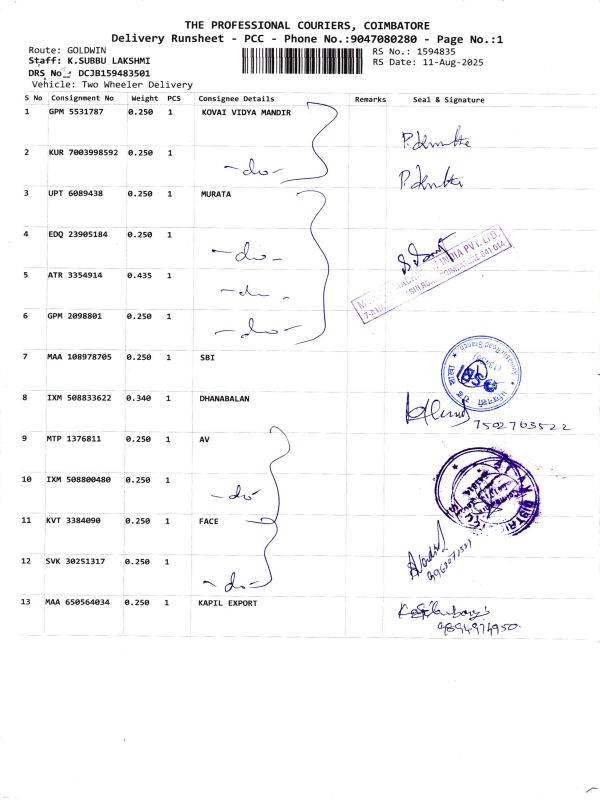 THE PROFESSIONAL COURIERS, COIMBATORE
Delivery Runsheet - PCC - Phone No.:9047080280 - Page No.:1
Route: GOLDWIN
RS No.: 1594835
Staff: K.SUBBU LAKSHMI
RS Date: 11-Aug-2025
DRS No.: DCJB159483501
Vehicle: Two Wheeler Delivery
S No Consignment No Weight PCS Consignee Details Remarks Seal & Signature
1 GPM 5531787 0.250 1 KOVAI VIDYA MANDIR
2 KUR 7003998592 0.250 1 -do-
3 UPT 6089438 0.250 1 MURATA
4 EDQ 23905184 0.250 1 -do-
5 ATR 3354914 0.435 1 -do-
6 GPM 2098801 0.250 1 -do-
7 MAA 108978705 0.250 1 SBI
SBI
8 IXM 508833622 0.340 1 DHANABALAN
7502703522
9 MTP 1376811 0.250 1 AV
10 IXM 508800480 0.250 1 -do-
11 KVT 3384090 0.250 1 FACE
12 SVK 30251317 0.250 1 -do-
13 MAA 650564034 0.250 1 KAPIL EXPORT
9894974950